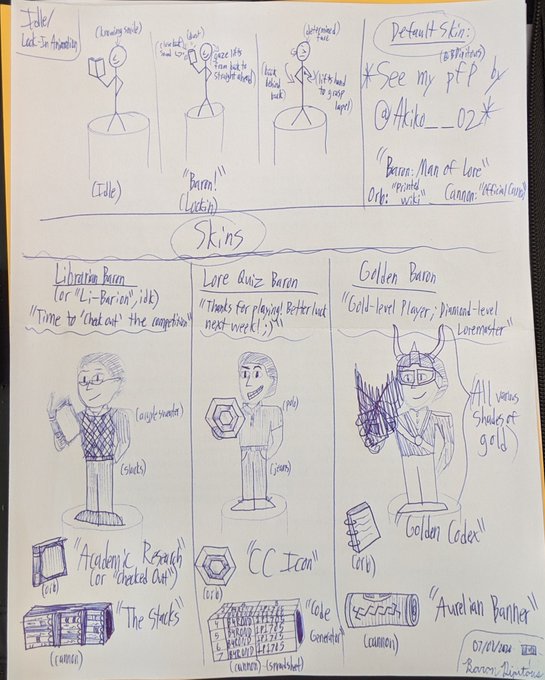 Idle/
Lock-In Animation
(knowing smile)
(close book, small
(dust)
gaze lifts
from book to
straight ahead)
(determined
face)
(back
behind
back)
(lifts hand
to grasp
lapel)
(Idle)
"Baron!"
(Lockin)
Default Skin:
*See my pfp by
@Akiko__02*
"Baron: Man of Lore"
Orb: "Printed
Wiki"
Cannon: "Official Canon"
Skins
Librarian Baron
(or "Li-Barion", idk)
"Time to 'check out' the competition"
(argyle sweater)
(slacks)
"Academic Research"
(or "Checked Out")
(orb)
"The Stacks"
(cannon)
Lore Quiz Baron
"Thanks for playing! Better luck
next week! :)"
(polo)
(jeans)
"CC Icon"
(orb)
"Code
Generator"
(cannon) (spreadsheet)
Golden Baron
"Gold-level Player; Diamond-level
Loremaster"
(All various
shades of
gold)
"Golden Codex"
(orb)
"Aurelian Banner"
(cannon)